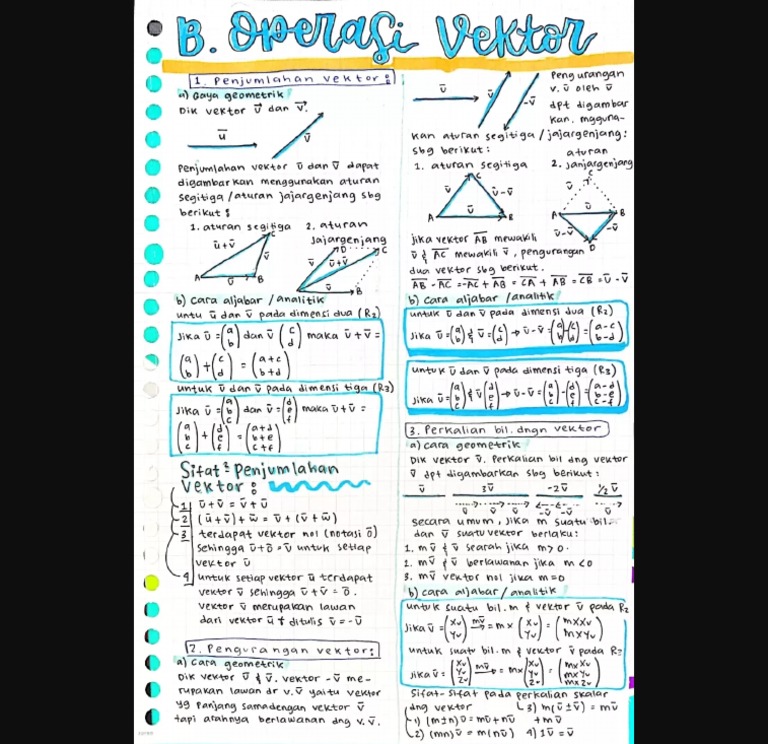 B. Operasi Vektor
1. Penjumlahan vektor:
a) Gaya geometrik
Dik vektor u̅ dan v̅.
u̅
v̅
Penjumlahan vektor u̅ dan v̅ dapat
digambarkan menggunakan aturan
segitiga /aturan jajargenjang sbg
berikut :
1. aturan segitiga 2. aturan
Jajargenjang
u̅+v̅
C
v̅
A
u̅
B
D
C
v̅
u̅+v̅
A
u̅
B
b) cara aljabar /analitik
untu u̅ dan v̅ pada dimensi dua (R2)
Jika u̅ = (a b) dan v̅ (c d) maka u̅ + v̅ =
(a b) + (c d) = (a+c b+d)
untuk u̅ dan v̅ pada dimensi tiga (R3)
Jika u̅ = (a b c) dan v̅ = (d e f) maka u̅ + v̅ =
(a b c) + (d e f) = (a+d b+e c+f)
Sifat² Penjumlahan
Vektor :
1 u̅ + v̅ = v̅ + u̅
2 (u̅ + v̅) + w̅ = u̅ + (v̅ + w̅)
3 terdapat vektor nol (notasi o̅)
sehingga u̅ + o̅ = u̅ untuk setiap
vektor u̅
4 untuk setiap vektor u̅ terdapat
vektor v̅ sehingga u̅ + v̅ = o̅.
vektor v̅ merupakan lawan
dari vektor u̅ & ditulis v̅ = -u̅
2. Pengurangan vektor:
a) cara geometrik
Dik vektor u̅ & v̅. vektor -v̅ me-
rupakan lawan dr v. v̅ yaitu vektor
yg panjang samadengan vektor v̅
tapi arahnya berlawanan dng v. v̅.
u̅
v̅
-v̅
Pengurangan
v. u̅ oleh v̅
dpt digambar
kan. mgguna-
kan aturan segitiga / jajargenjang:
sbg berikut :
1. aturan segitiga
aturan
2. janjargenjang
C
v̅
u̅-v̅
A
u̅
B
C
v̅
A
u̅
B
-v̅
u̅-v̅
D
jika vektor AB mewakili
u̅ & AC mewakili v̅, pengurangan
dua vektor sbg berikut.
AB - AC = -AC + AB = CA + AB = CB = u̅ - v̅
b) cara aljabar /analitik
untuk u̅ dan v̅ pada dimensi dua (R2)
Jika u̅ = (a b) & v̅ = (c d) → u̅ - v̅ = (a b) (c d) = (a-c b-d)
untuk u̅ dan v̅ pada dimensi tiga (R3)
Jika u̅ = (a b c) & v̅ (d e f) → u̅ - v̅ = (a b c) - (d e f) = (a-d b-e c-f)
3. Perkalian bil. dngn vektor
a) cara geometrik
Dik vektor v̅. Perkalian bil dng vektor
v̅ dpt digambarkan sbg berikut :
v̅ 3v̅ -2v̅ ½v̅
v̅ v̅ v̅ -v̅ -v̅
secara umum, jika m suatu bil.
dan v̅ suatu vektor berlaku:
1. mv̅ & v̅ searah jika m>0.
2. mv̅ & v̅ berlawanan jika m<0
3. mv̅ vektor nol jika m=0
b) cara aljabar / analitik
untuk suatu bil. m & vektor v̅ pada R2
Jika v̅ = (Xv Yv) mv̅→ = m x (Xv Yv) = (mxXv mxYv)
untuk suatu bil. m & vektor v̅ pada R3
Jika v̅ = (Xv Yv Zv) mv̅→ = mx (Xv Yv Zv) = (mxXv mxYv mxZv)
Sifat-sifat pada perkalian skalar
dng vektor
1) (m±n) v̅ = mv̅ + nv̅
2) (mn)v̅ = m(nv̅)
3) m(u̅ ± v̅) = mu̅
+ mv̅
4) 1v̅ = v̅